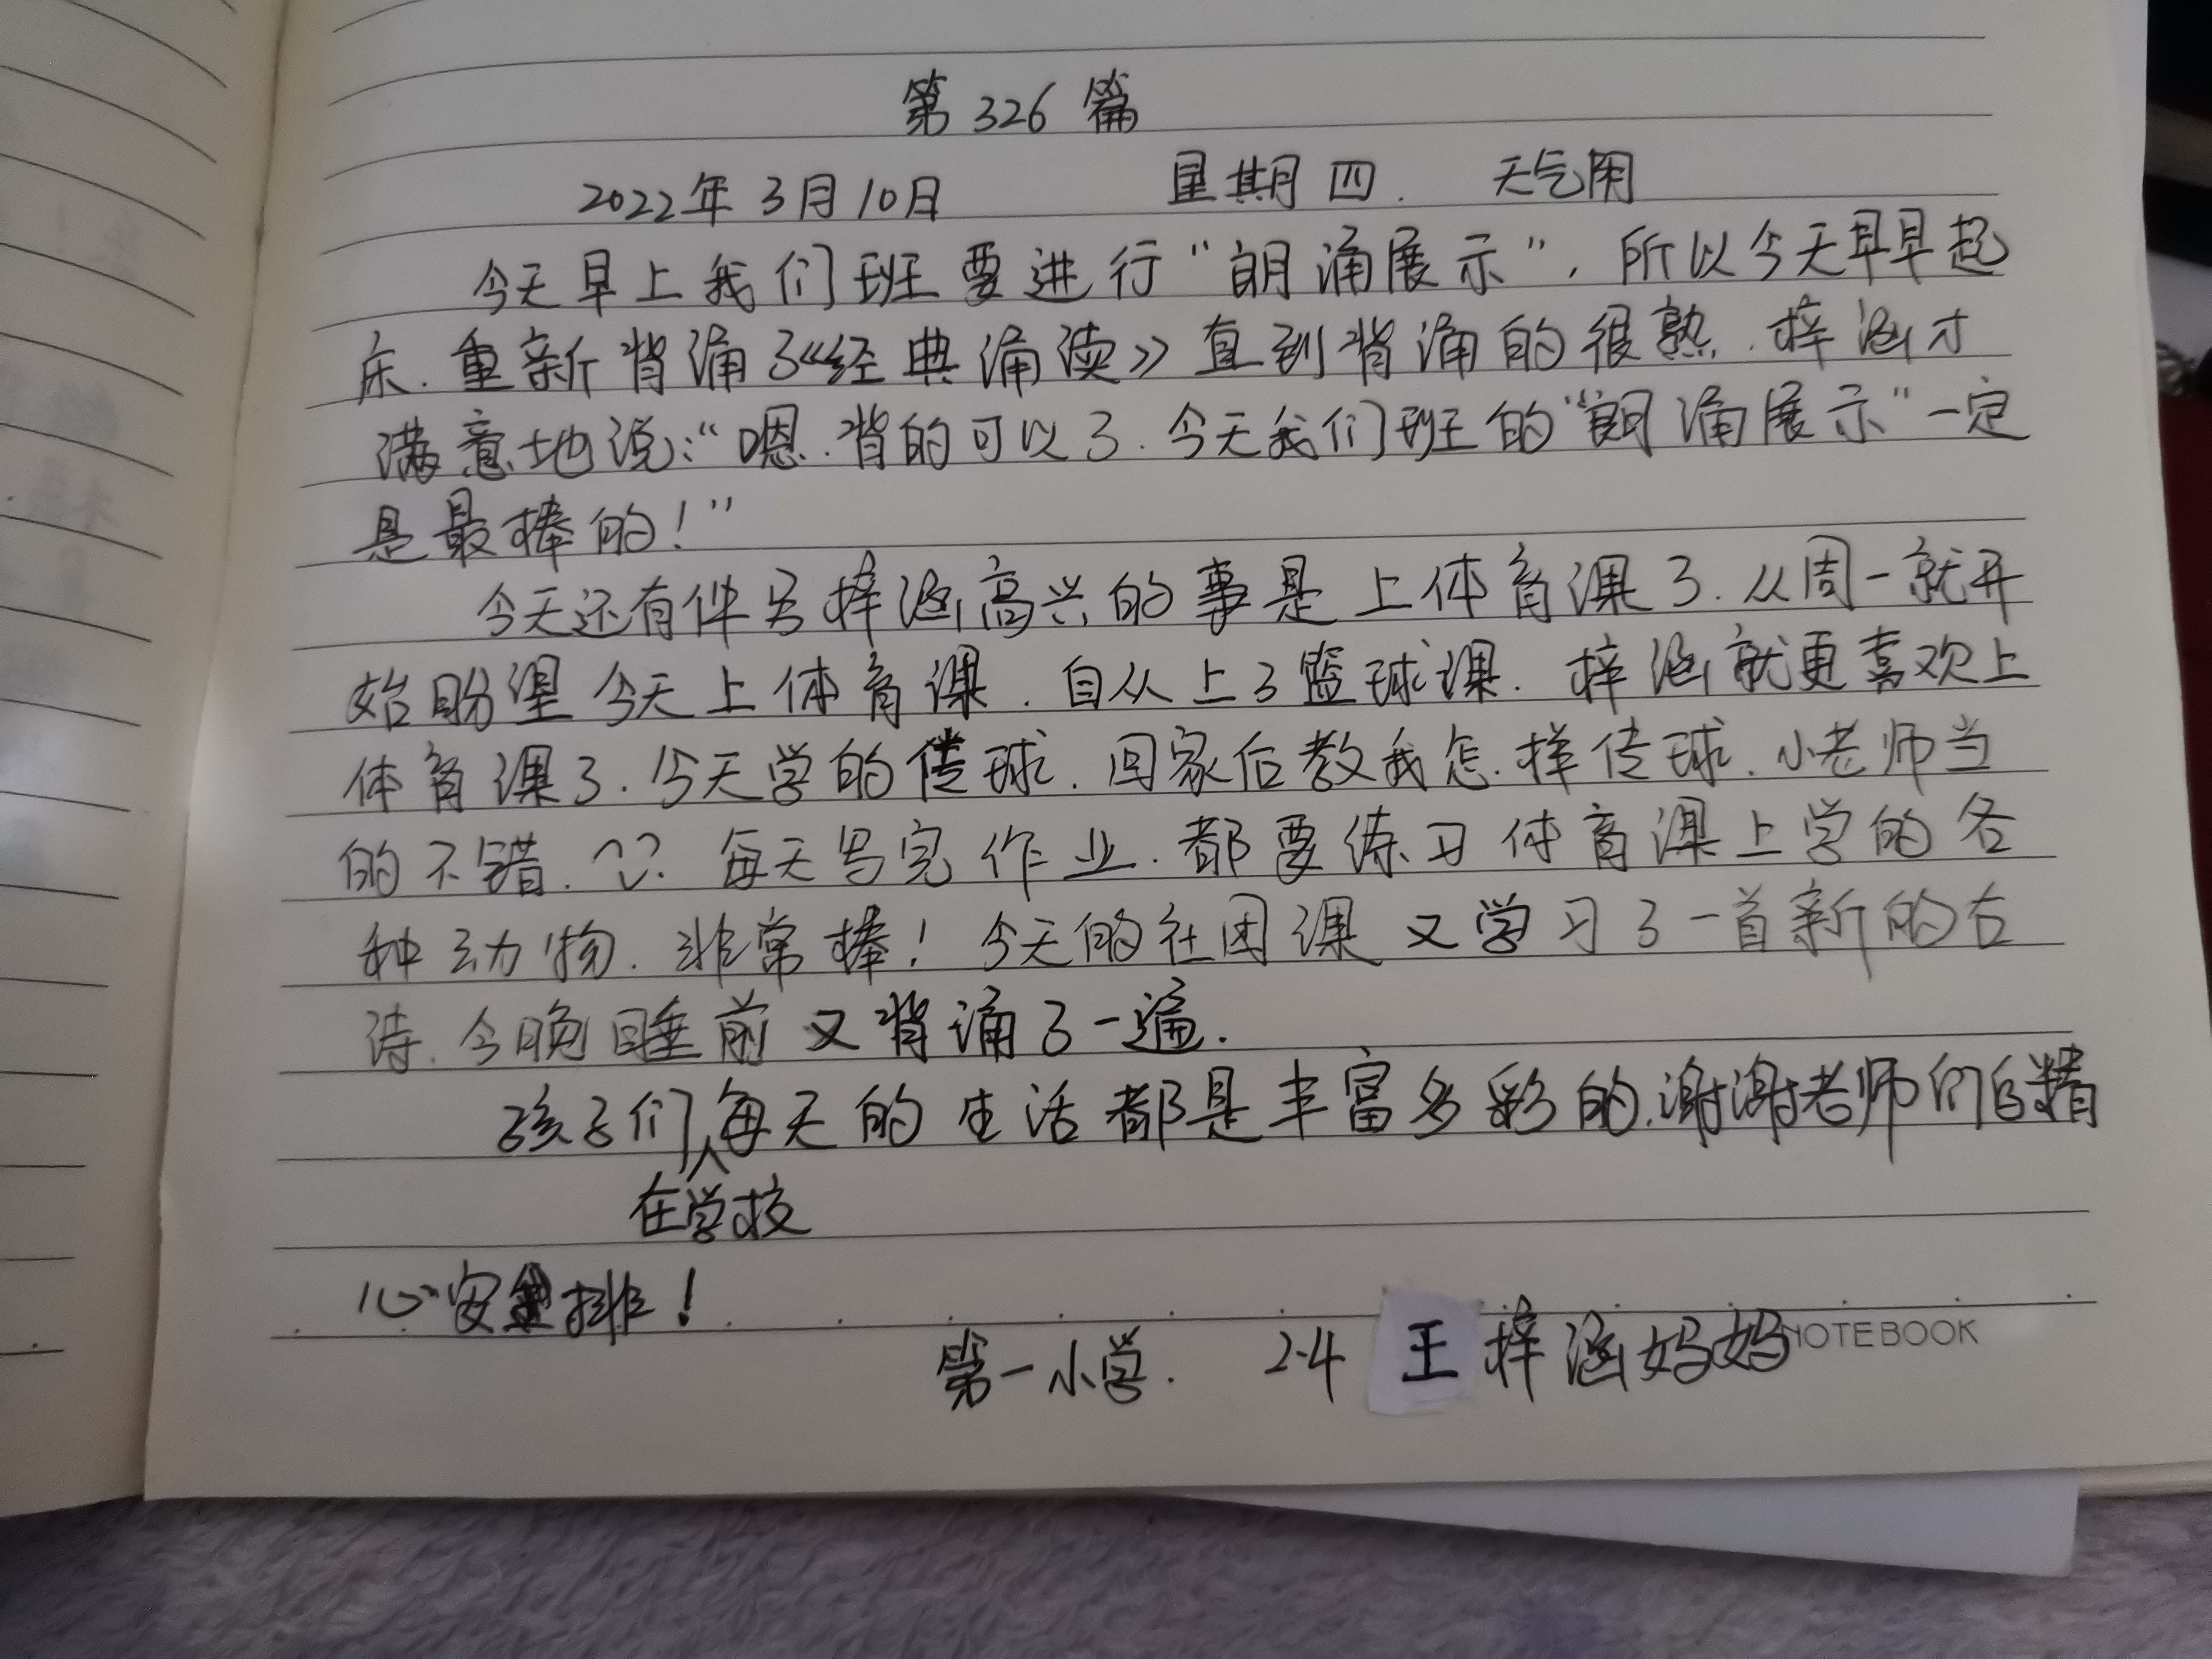 第326篇
2022年3月10日 星期四. 天气阴
今天早上我们班要进行“朗诵展示”，所以今天早早起
床.重新背诵了《经典诵读》直到背诵的很熟.梓涵才
满意地说：“嗯.背的可以了.今天我们班的“朗诵展示”一定
是最棒的！”
今天还有件另梓涵高兴的事是上体育课了.从周一就开
始盼望今天上体育课.自从上了篮球课.梓涵就更喜欢上
体育课了.今天学的传球.回家后教我怎样传球.小老师当
的不错.每天写完作业.都要练习体育课上学的各
种动物.非常棒！今天的社团课又学习了一首新的古
诗.今晚睡前又背诵了一遍.
孩子们在学校每天的生活都是丰富多彩的.谢谢老师们的精
心安排！
第一小学. 2-4 王梓涵妈妈
NOTEBOOK